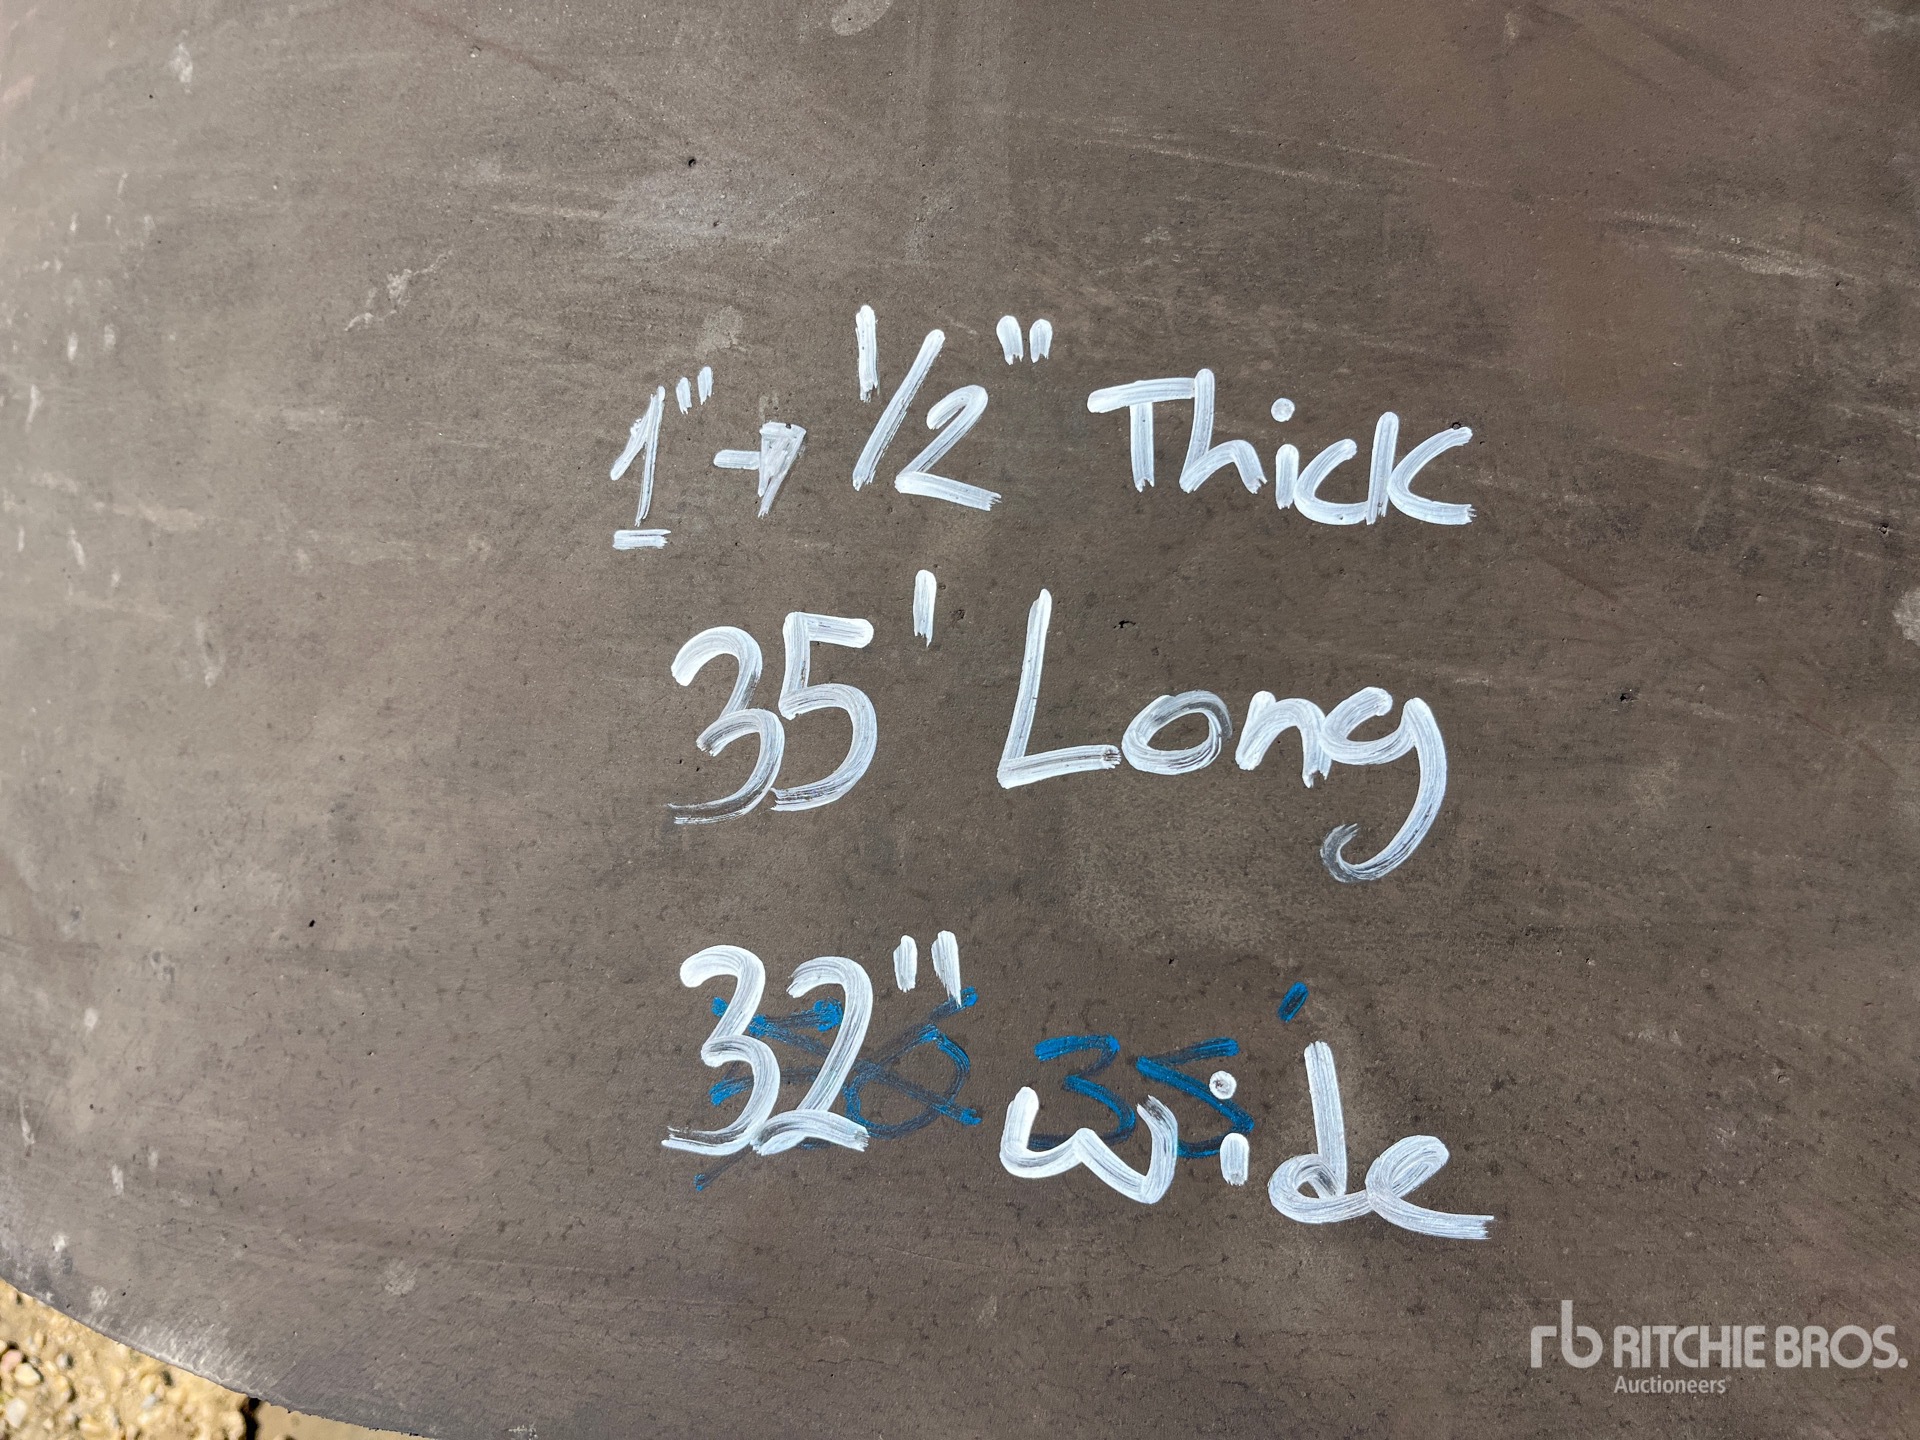 1" → 1/2" Thick
35' Long
32" wide
35'
rb RITCHIE BROS.
Auctioneers